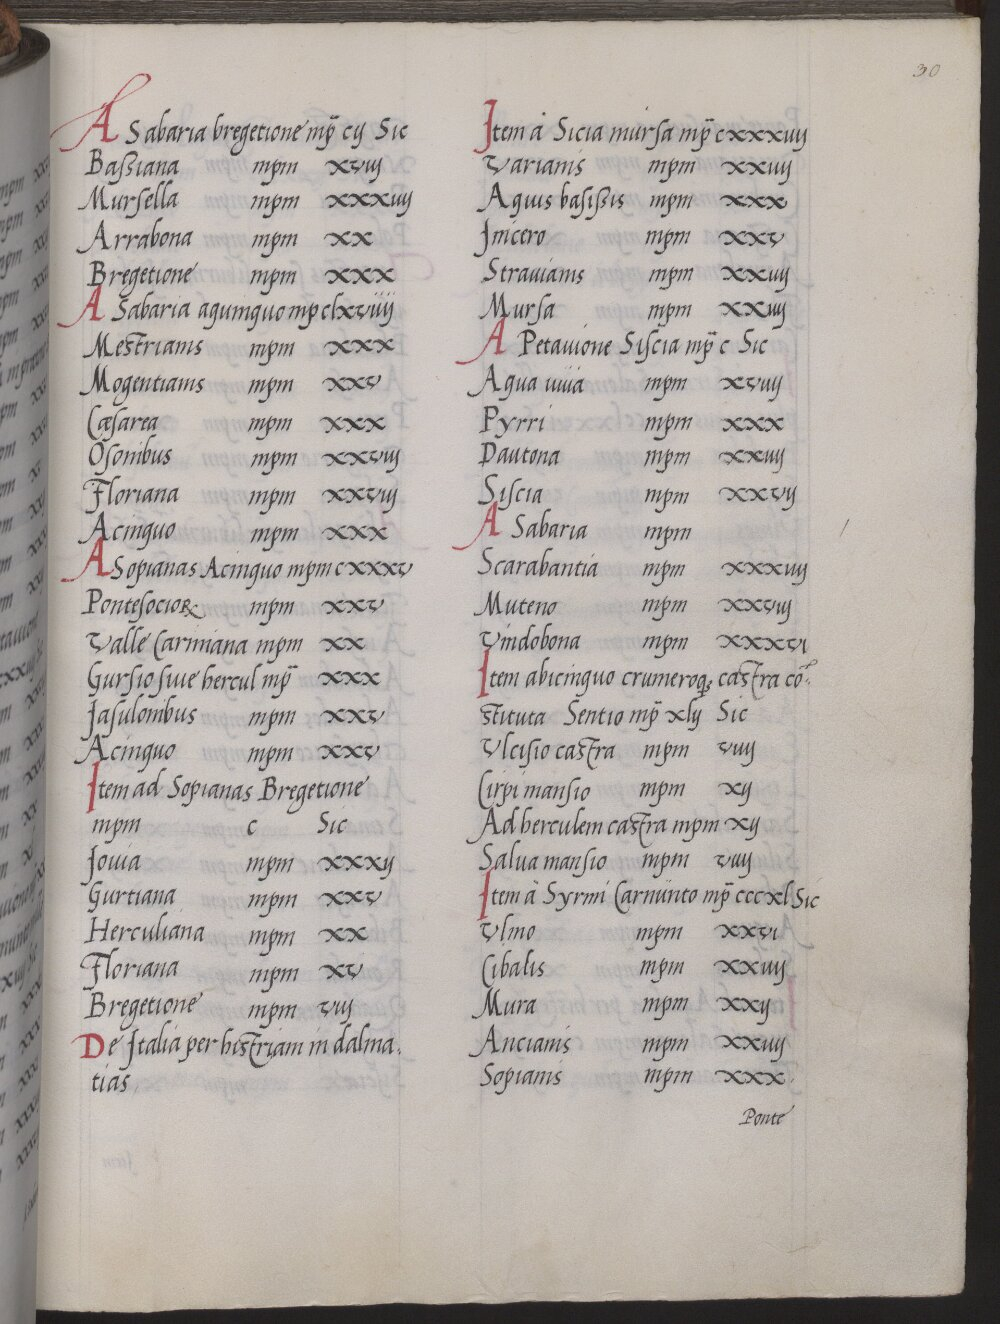 30
A Sabaria bregetione mp̄ cij Sic
Bassiana mpm xviij
Mursella mpm xxxiiij
Arrabona mpm xx
Bregetione mpm xxx
A Sabaria aguinguo mp clxviiij
Mestrianis mpm xxx
Mogentianis mpm xxv
Cæsarea mpm xxx
Osonibus mpm xxviij
Floriana mpm xxviij
Acinquo mpm xxx
A Sopianas Acinquo mpm cxxxv
Pontesocioꝝ mpm xxv
Valle Carimana mpm xx
Gursio siue hercul mp̄ xxx
Jasulonibus mpm xxv
Acinquo mpm xxv
Item ad Sopianas Bregetione
mpm c Sic
Jouia mpm xxxij
Gurtiana mpm xxv
Herculiana mpm xx
Floriana mpm xv
Bregetione mpm viij
De Italia per histriam in dalma.
tias.
Item à Sicia mursa mp̄ cxxxiiij
Varianis mpm xxiiij
Aquis basissis mpm xxx
Jnicero mpm xxv
Strauianis mpm xxiiij
Mursa mpm xxiiij
A Petauione Siscia mp̄ c Sic
Aqua uiua mpm xviij
Pyrri mpm xxx
Dautona mpm xxiiij
Siscia mpm xxvij
A Sabaria mpm
Scarabantia mpm xxxiiij
Muteno mpm xxviij
Vindobona mpm xxxvi
Item abicinquo crumeroqꝫ castra cō.
stituta Sentio mp̄ xlij Sic
Vlcisio castra mpm viiij
Cirpi mansio mpm xij
Ad herculem castra mpm xij
Salua mansio mpm viiij
Item à Syrmi Carnunto mp̄ cccxl Sic
Vlmo mpm xxvi
Cibalis mpm xxiiij
Mura mpm xxij
Ancianis mpm xxiiij
Sopianis mpm xxx.
Ponte